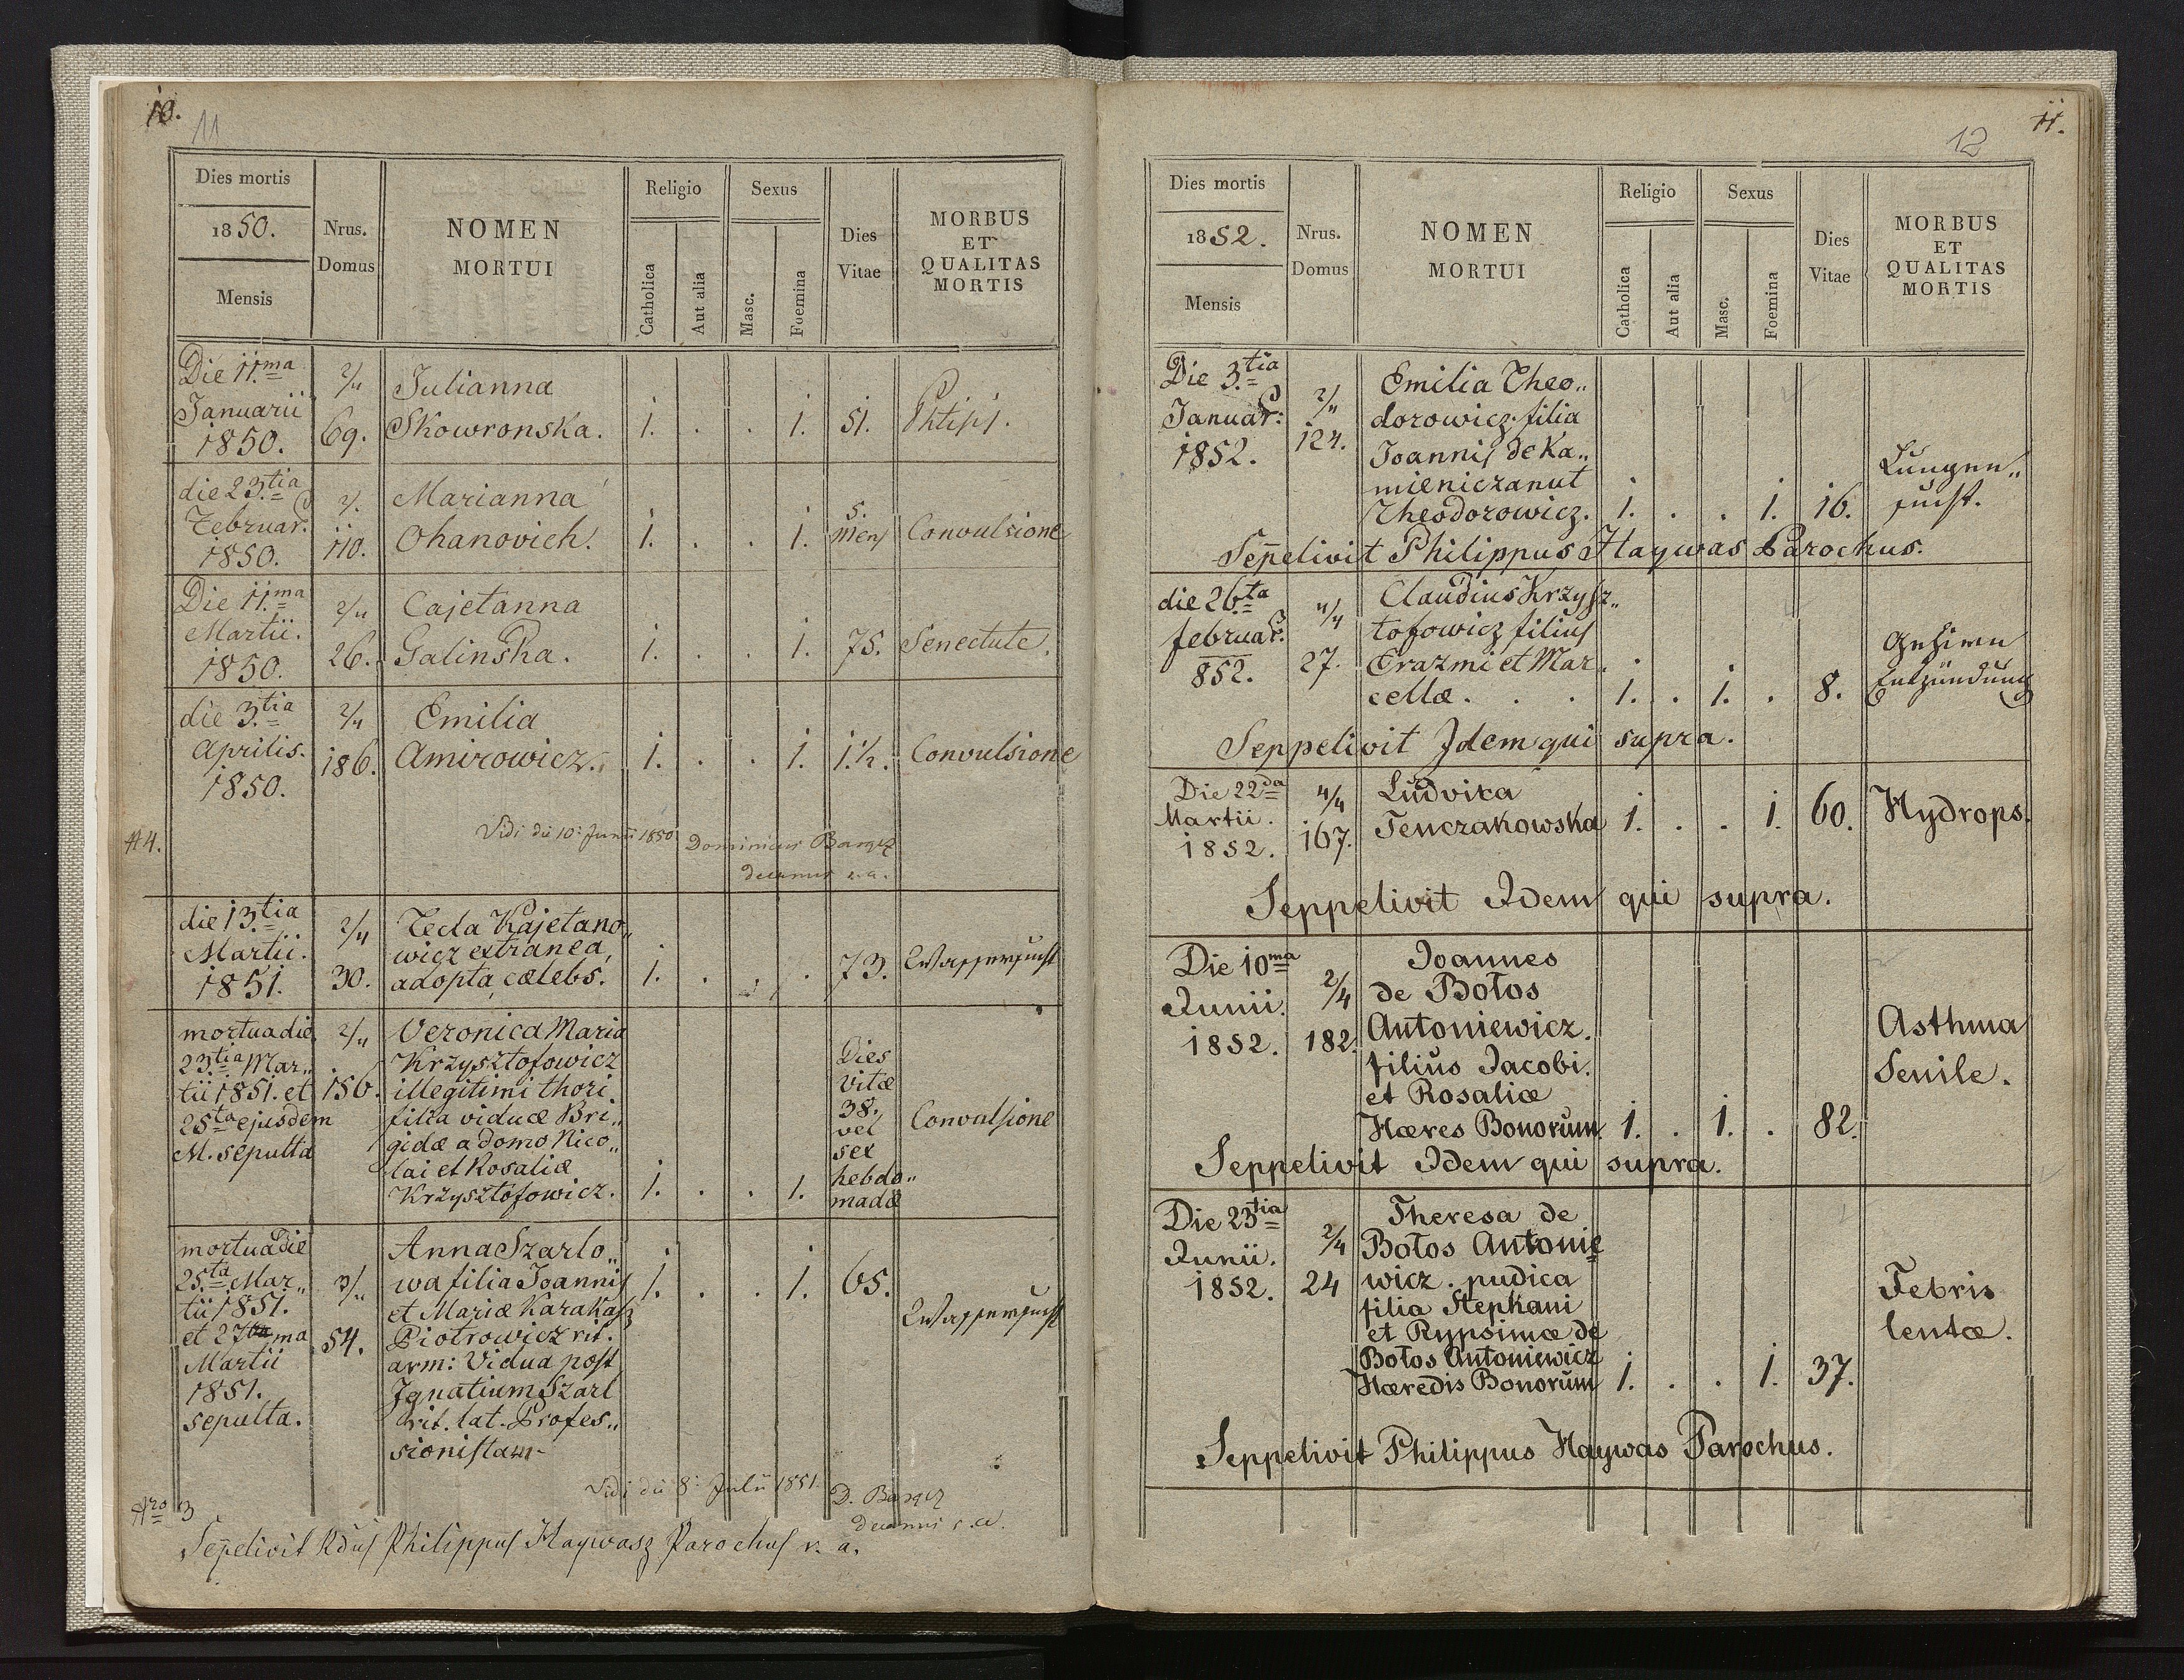 10.
11
Dies mortis
1850.
Mensis
Nrus.
Domus
NOMEN
MORTUI
Religio
Catholica
Aut alia
Sexus
Masc.
Foemina
Dies
Vitae
MORBUS
ET
QUALITAS
MORTIS
Die 11.ma
Januarii
1850.
2/4
69.
Julianna
Skowronska.
1. . . 1. 51. Phtisis.
die 23.tia
Februar.
1850.
2/.
110.
Marianna
Ohanovich.
1. . . 1.
5.
mens
Convulsione
Die 11.ma
Martii.
1850.
2/4
26.
Cajetanna
Galinska.
1. . . 1. 75. Senectute.
die 3.tia
Aprilis.
1850.
2/4
186.
Emilia
Amirowicz.
1. . . 1. 1 1/2. Convulsione
N 4.
Vidi die 10: Junii 1850 Dominicus Barącz
decanus r.a.
die 13.tia
Martii.
1851.
2/4
30.
Tecla Kajetano„
wicz extranea,
adopta, cælebs.
1. . . . 73. Wassersucht
mortua die
23.tia Mar„
tii 1851. et
25ta ejusdem
M. sepulta
2/4
156.
Veronica Maria
Krzysztofowicz
illegitimi thori
filia viduæ Bri„
gidæ a domo Nico„
lai et Rosaliæ
Krzysztofowicz.
1. . . 1.
Dies
vitæ
38.
vel
sex
hebdo„
madæ
Convulsione
mortua die
25.ta Mar„
tii 1851.
et 27ma
Martii
1851.
sepulta.
54.
Anna Szarlo„
wa filia Joannis
et Mariæ Karakasz
Piotrowicz rit.
arm: Vidua post
Ignatium Szarl
rit. lat. Profes„
sionistam
1. . . 1. 65.
Wassersucht
Vidi die 8: Julii 1851. D. Barącz
decanus r.a.
Nro 3
Seppelivit Rdus Philippus Haywasz Parochus r. a.
11.
12
Dies mortis
1852.
Mensis
Nrus.
Domus
NOMEN
MORTUI
Religio
Catholica
Aut alia
Sexus
Masc.
Foemina
Dies
Vitae
MORBUS
ET
QUALITAS
MORTIS
Die 3.tia
Januar:
1852.
2/4
124.
Emilia Theo„
dorowicz. filia
Joannis de Ka„
mieniczanut
Theodorowicz.
1. . . 1. 16.
Lungen„
sucht.
Seppelivit Philippus Haywas Parochus.
die 26.ta
februar.
852.
4/4
27.
Claudius Krzysz„
tofowicz filius
Erazmi et Mar.
cellæ . . .
1. . 1. . 8.
Gehirn
Entzündung
Seppelivit Idem qui supra.
Die 22da
Martii.
1852.
4/4
167.
Ludvica
Tenczakowska
1. . . 1. 60. Hydrops.
Seppelivit Idem qui supra.
Die 10ma
Junii.
1852.
2/4
182.
Joannes
de Botos
Antoniewicz.
filius Jacobi.
et Rosaliæ
Hæres Bonorum.
1. . 1. . 82.
Asthma
Senile.
Seppelivit Idem qui supra.
Die 23tia
Junii.
1852.
2/4
24
Theresa de
Botos Antonie
wicz. pudica
filia Stephani
et Rypsimæ de
Botos Antoniewicz
Hæredis Bonorum
1. . . 1. 37.
Febris
lentæ.
Seppelivit Philippus Haywas Parochus.